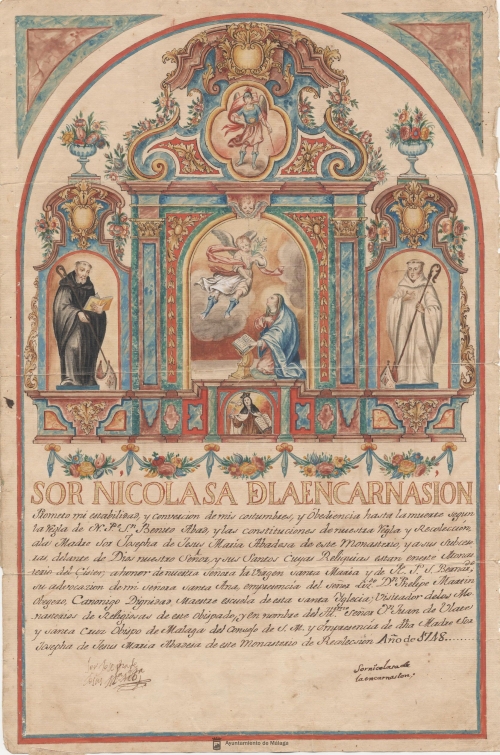 SOR NICOLASA DLAENCARNASION,
Prometo mi estabilidad, y converción de mis costumbres, y Obediencia hasta la muerte segun
la Regla de N. P. Sn. Benito Abad, y las constituciones de nuestra Regla y Recolección,
ala Madre Sor Josepha de Jesus Maria Abadesa de este Monasterio, y a sus Subceso
ras delante de Dios nuestro Señor, y sus Santos Cuyas Reliquias estan en este Monas
terio del Cister, a honor de nuestra Señora la Virgen Santa Maria y de N. P. Sn. Bernardo
su advocacion de mi Señora Santa Ana, Enpresencia del Señor Lizdo. Dn. Phelipe Martin
Obejero, Canonigo Dignidad Maestre escuela de esta Santa Yglecia; Visitador delos Mo
nasterios de Religiosas de este Obispado, y en nombre del Yllmo. Señor Dn. Juan de Ulates
y Santa Cruz Obispo de Malaga del Consejo de S. M. y Enpresencia de dha Madre Sor
Josepha de Jesus Maria Abadesa de este Monasterio de Recolección Año de 1748.
Sor nicolasa de
la encarnasion;
Ayuntamiento de Málaga